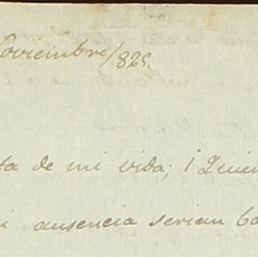 Noviembre/825.
ta de mi vida; ¡ Quien
ausencia serian